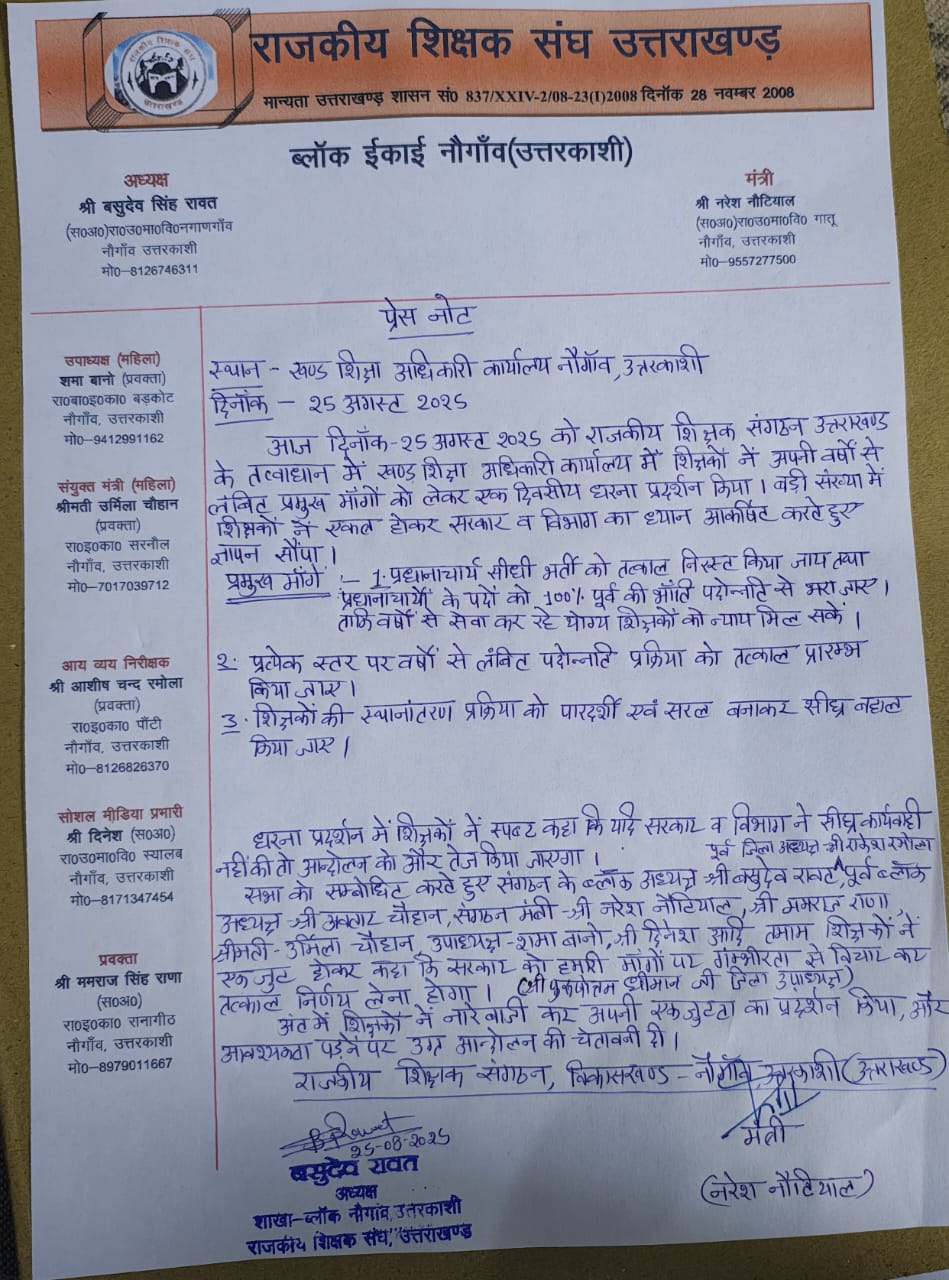 राजकीय शिक्षक संघ उत्तराखण्ड
मान्यता उत्तराखण्ड शासन सं0 837/XXIV-2/08-23(I)2008 दिनॉक 28 नवम्बर 2008
ब्लॉक ईकाई नौगॉव(उत्तरकाशी)
अध्यक्ष
श्री बसुदेव सिंह रावत
(स0अ0)रा0उ0मा0वि0नगाणगॉव
नौगॉव उत्तरकाशी
मो0–8126746311
मंत्री
श्री नरेश नौटियाल
(स0अ0)रा0उ0मा0वि0 गातू
नौगॉव, उत्तरकाशी
मो0–9557277500
उपाध्यक्ष (महिला)
शमा बानो (प्रवक्ता)
रा0बा0इ0का0 बड़कोट
नौगॉव, उत्तरकाशी
मो0–9412991162
संयुक्त मंत्री (महिला)
श्रीमती उर्मिला चौहान
(प्रवक्ता)
रा0इ0का0 सरनौल
नौगॉव, उत्तरकाशी
मो0–7017039712
आय व्यय निरीक्षक
श्री आशीष चन्द रमोला
(प्रवक्ता)
रा0इ0का0 पौंटी
नौगॉव, उत्तरकाशी
मो0–8126826370
सोशल मीडिया प्रभारी
श्री दिनेश (स0अ0)
रा0उ0मा0वि0 स्यालब
नौगॉव, उत्तरकाशी
मो0–8171347454
प्रवक्ता
श्री ममराज सिंह राणा
(स0अ0)
रा0इ0का0 रानागीठ
नौगॉव, उत्तरकाशी
मो0–8979011667
प्रेस नोट
स्थान – खण्ड शिक्षा अधिकारी कार्यालय नौगॉव, उत्तरकाशी
दिनॉक – 25 अगस्त 2025
आज दिनॉक-25 अगस्त 2025 को राजकीय शिक्षक संगठन उत्तराखण्ड
के तत्वाधान में खण्ड शिक्षा अधिकारी कार्यालय में शिक्षकों नें अपनी वर्षों से
लंबित प्रमुख मॉगों को लेकर एक दिवसीय धरना प्रदर्शन किया। बड़ी संख्या में
शिक्षकों ने एकत्र होकर सरकार व विभाग का ध्यान आकर्षित करते हुए
ज्ञापन सौंपा।
प्रमुख मॉगें :– 1. प्रधानाचार्य सीधी भर्ती को तत्काल निरस्त किया जाय तथा
प्रधानाचार्यों के पदों को 100% पूर्व की भॉति पदोन्नति से भरा जाए।
ताकि वर्षों से सेवा कर रहे योग्य शिक्षकों को न्याय मिल सकें।
2. प्रत्येक स्तर पर वर्षों से लंबित पदोन्नति प्रक्रिया को तत्काल प्रारम्भ
किया जाए।
3. शिक्षकों की स्थानांतरण प्रक्रिया को पारदर्शी एवं सरल बनाकर शीघ्र बहाल
किया जाए।
धरना प्रदर्शन में शिक्षकों नें स्पष्ट कहा कि यदि सरकार व विभाग ने शीघ्र कार्यवाही
नहीं की तो आन्दोलन को और तेज किया जाएगा।
पूर्व जिला अध्यक्ष श्री राकेश रमोला
सभा को सम्बोधित करते हुए संगठन के ब्लॉक अध्यक्ष श्री बसुदेव रावत, पूर्व ब्लॉक
अध्यक्ष श्री अवतार चौहान, संगठन मंत्री श्री नरेश नौटियाल, श्री ममराज राणा,
श्रीमती उर्मिला चौहान, उपाध्यक्ष-शमा बानो, श्री दिनेश आदि तमाम शिक्षकों नें
एक जुट होकर कहा कि सरकार को हमारी मांगों पर गम्भीरता से विचार कर
तत्काल निर्णय लेना होगा। (श्री पुरुषोत्तम धीमान जी जिला उपाध्यक्ष)
अंत में शिक्षकों नें नारेबाजी कर अपनी एकजुटता का प्रदर्शन किया, और
आवश्यकता पड़नें पर उग्र आन्दोलन की चेतावनी दी।
राजकीय शिक्षक संगठन, विकासखण्ड – नौगॉव, उत्तरकाशी (उत्तराखण्ड)
25-08-2025
बसुदेव रावत
अध्यक्ष
शाखा–ब्लॉक नौगॉव, उत्तरकाशी
राजकीय शिक्षक संघ, उत्तराखण्ड
मंत्री
(नरेश नौटियाल)